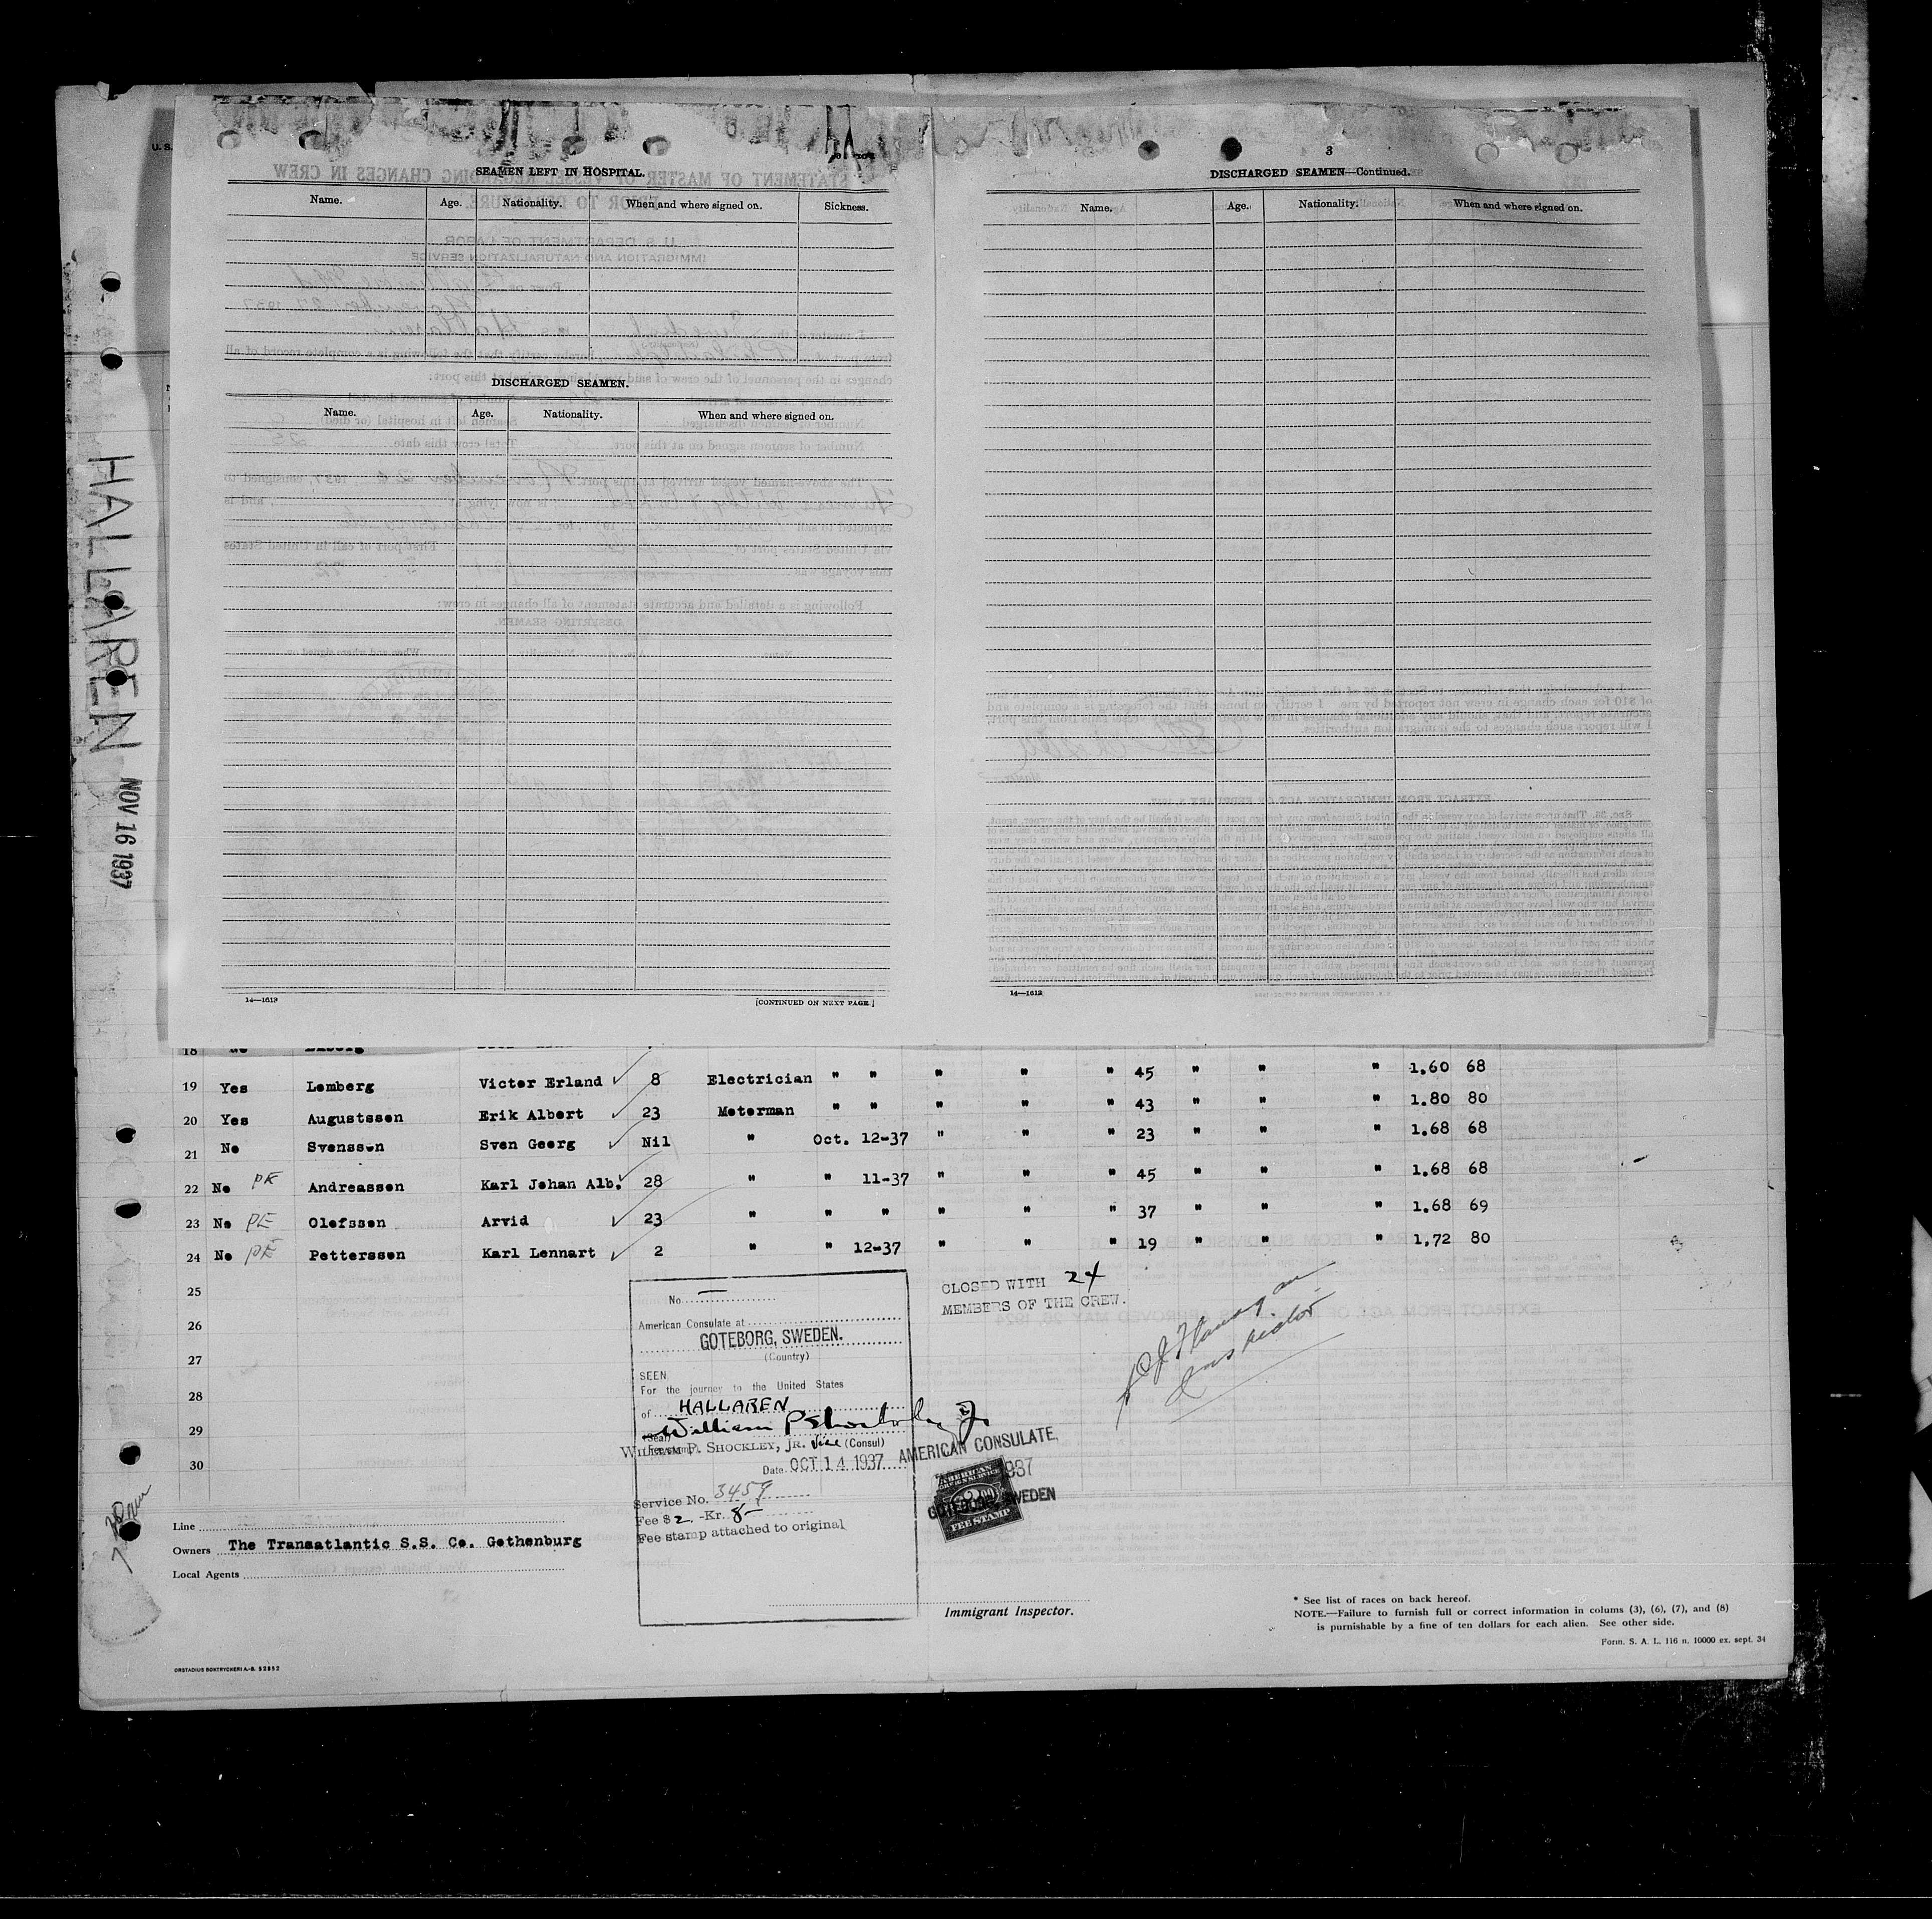 U. S.
SEAMEN LEFT IN HOSPITAL.
Name. Age. Nationality. When and where signed on. Sickness.
DISCHARGED SEAMEN.
Name. Age. Nationality. When and where signed on.
14—1613
[CONTINUED ON NEXT PAGE.]
3
DISCHARGED SEAMEN—Continued.
Name. Age. Nationality. When and where signed on.
14—1613
HALLAREN NOV 16 1937
18
19 Yes Lomberg Victor Erland 8 Electrician " " " " " 45 " " " 1.60 68
20 Yes Augustsson Erik Albert 23 Motorman " " " " " 43 " " " 1.80 80
21 No Svensson Sven Georg Nil " Oct. 12-37 " " " 23 " " " 1.68 68
22 No PE Andreassen Karl Johan Alb. 28 " " 11-37 " " " 45 " " " 1.68 68
23 No PE Olofsson Arvid 23 " " " " " " 37 " " " 1.68 69
24 No PE Pettersson Karl Lennart 2 " " 12-37 " " " 19 " " " 1,72 80
25
26
27
28
29
30
CLOSED WITH 24
MEMBERS OF THE CREW.
Inspector
No. —
American Consulate at
GOTEBORG, SWEDEN.
(Country)
SEEN
For the journey to the United States
of HALLAREN
William P Shockley Jr
(Seal)
WILLIAM P. SHOCKLEY, JR. Vice (Consul)
Date OCT 14 1937
Service No. 3459
Fee $ 2. -Kr. 8-
Fee stamp attached to original
AMERICAN CONSULATE,
1937
GOTEBORG, SWEDEN
AMERICAN
FEE STAMP
Line
Owners The Transatlantic S.S. Co. Gothenburg
Local Agents
Immigrant Inspector.
* See list of races on back hereof.
NOTE.—Failure to furnish full or correct information in colums (3), (6), (7), and (8)
is punishable by a fine of ten dollars for each alien. See other side.
Form. S. A. L. 116 n. 10000 ex. sept. 34
ORSTADIUS BOKTRYCKERI A.-B. 52852